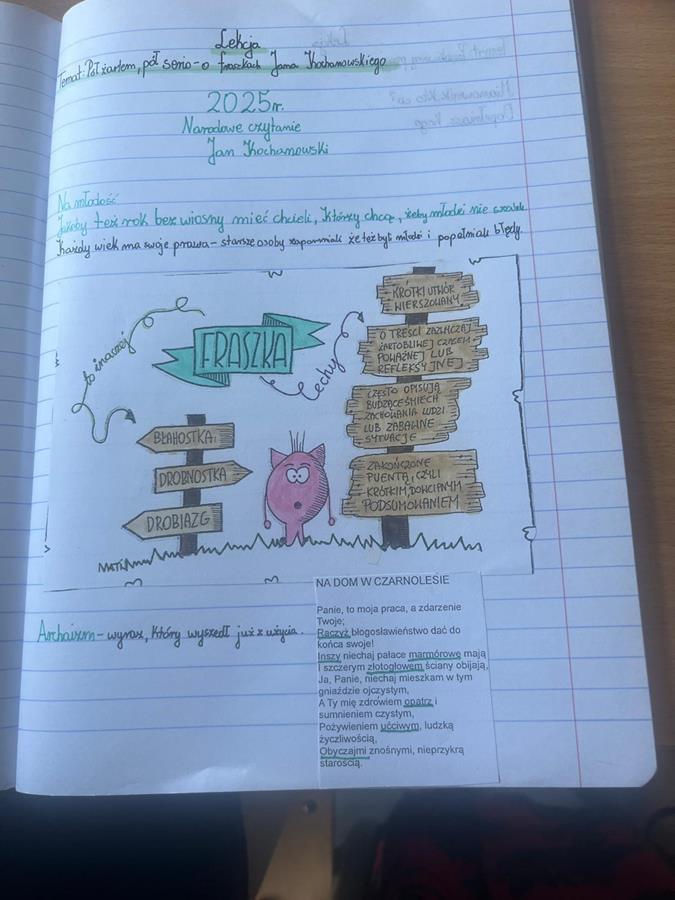 Lekcja
Temat: Pół żartem, pół serio - o fraszkach Jana Kochanowskiego
2025r.
Narodowe czytanie
Jan Kochanowski
Na młodość
Jakoby też rok bez wiosny mieć chcieli, Którzy chcą, żeby młodzi nie szaleli.
Każdy wiek ma swoje prawa - starsze osoby zapomniały że też byli młodzi i popełniali błędy.
to inaczej
FRASZKA
cechy
KRÓTKI UTWÓR
WIERSZOWANY
O TREŚCI ZAZWYCZAJ
ŻARTOBLIWEJ CZASEM
POWAŻNEJ LUB
REFLEKSYJNEJ
CZĘSTO OPISUJĄ
BUDZĄCE ŚMIECH
ZACHOWANIA LUDZI
LUB ZABAWNE
SYTUACJE
ZAKOŃCZONE
PUENTĄ, CZYLI
KRÓTKIM, DOWCIPNYM
PODSUMOWANIEM
BŁAHOSTKA
DROBNOSTKA
DROBIAZG
Archaizm - wyraz, który wyszedł już z użycia.
NA DOM W CZARNOLESIE
Panie, to moja praca, a zdarzenie
Twoje;
Raczyż błogosławieństwo dać do
końca swoje!
Inszy niechaj pałace marmórowe mają
I szczerym złotogłowem ściany obijają,
Ja, Panie, niechaj mieszkam w tym
gniaździe ojczystym,
A Ty mię zdrowiem opatrz i
sumnieniem czystym,
Pożywieniem ućciwym, ludzką
życzliwością,
Obyczajmi znośnymi, nieprzykrą
starością.